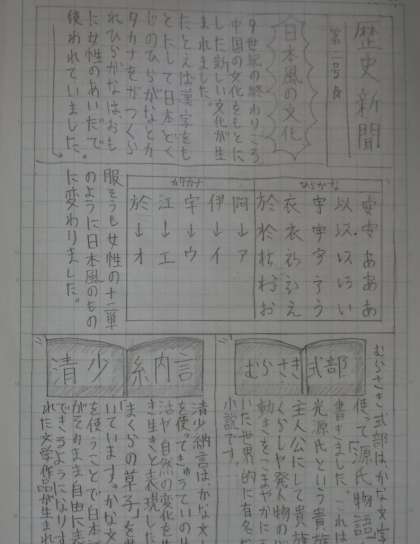 歴史新聞
第二号
日本風の文化
9世紀の終わりごろ
中国の文化をもとに
した新しい文化が生
まれました。
たとえば漢字をも
とにして日本どく
じのひらがなとか
タカナをがつくら
れひらがなは、おも
に女性のあいだで
使われていました。
ひらがな
安 安 あ あ あ
以 以 い い
宇 宇 う う
衣 衣 え
於 於 お お
カタカナ
阿→ア
伊→イ
宇→ウ
江→エ
於→オ
服そうも女性の十二単
のように日本風のもの
に変わりました。
むらさき式部
むらさき式部はかな文字
使って「源氏物語
書きました。これは
光源氏という貴族
主人公にして貴族
くらしや登人物の
動きをこまやかに
いた世界的に有名
小説です。
清少納言
清少納言は、かな文
を使って、きゅうていの
活や自然の変化を生
き生きと表現した
「まくらの草子」を
いています。かな文
を使うことで日本
がてのまま自由に
できるようになりす
れた文学作品が生まれ